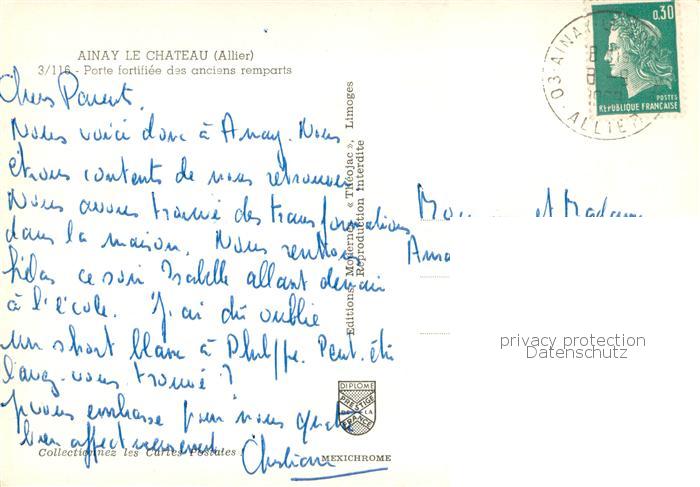 AINAY LE CHATEAU (Allier)
3/116 - Porte fortifiée des anciens remparts
Chers Parents,
Nous voici donc à Ainay. Nous
étions contents de nous retrouver
Nous avons trouvé des transformations
dans la maison. Nous rentrons
hélas ce soir Isabelle allant demain
à l'école. J'ai dû oublié
un short blanc à Philippe. Peut-être
l'avez-vous trouvé ?
Je vous embrasse pour nous quatre
bien affectueusement
Christiane
Collectionnez les Cartes Postales !
Editions Modernes « Théojac », Limoges
Reproduction interdite
DIPLOME
PRESTIGE
DE LA
FRANCE
MEXICHROME
0,30
POSTES
REPUBLIQUE FRANÇAISE
03 AINAY-LE-
ALLIER
et Madame
privacy protection
Datenschutz